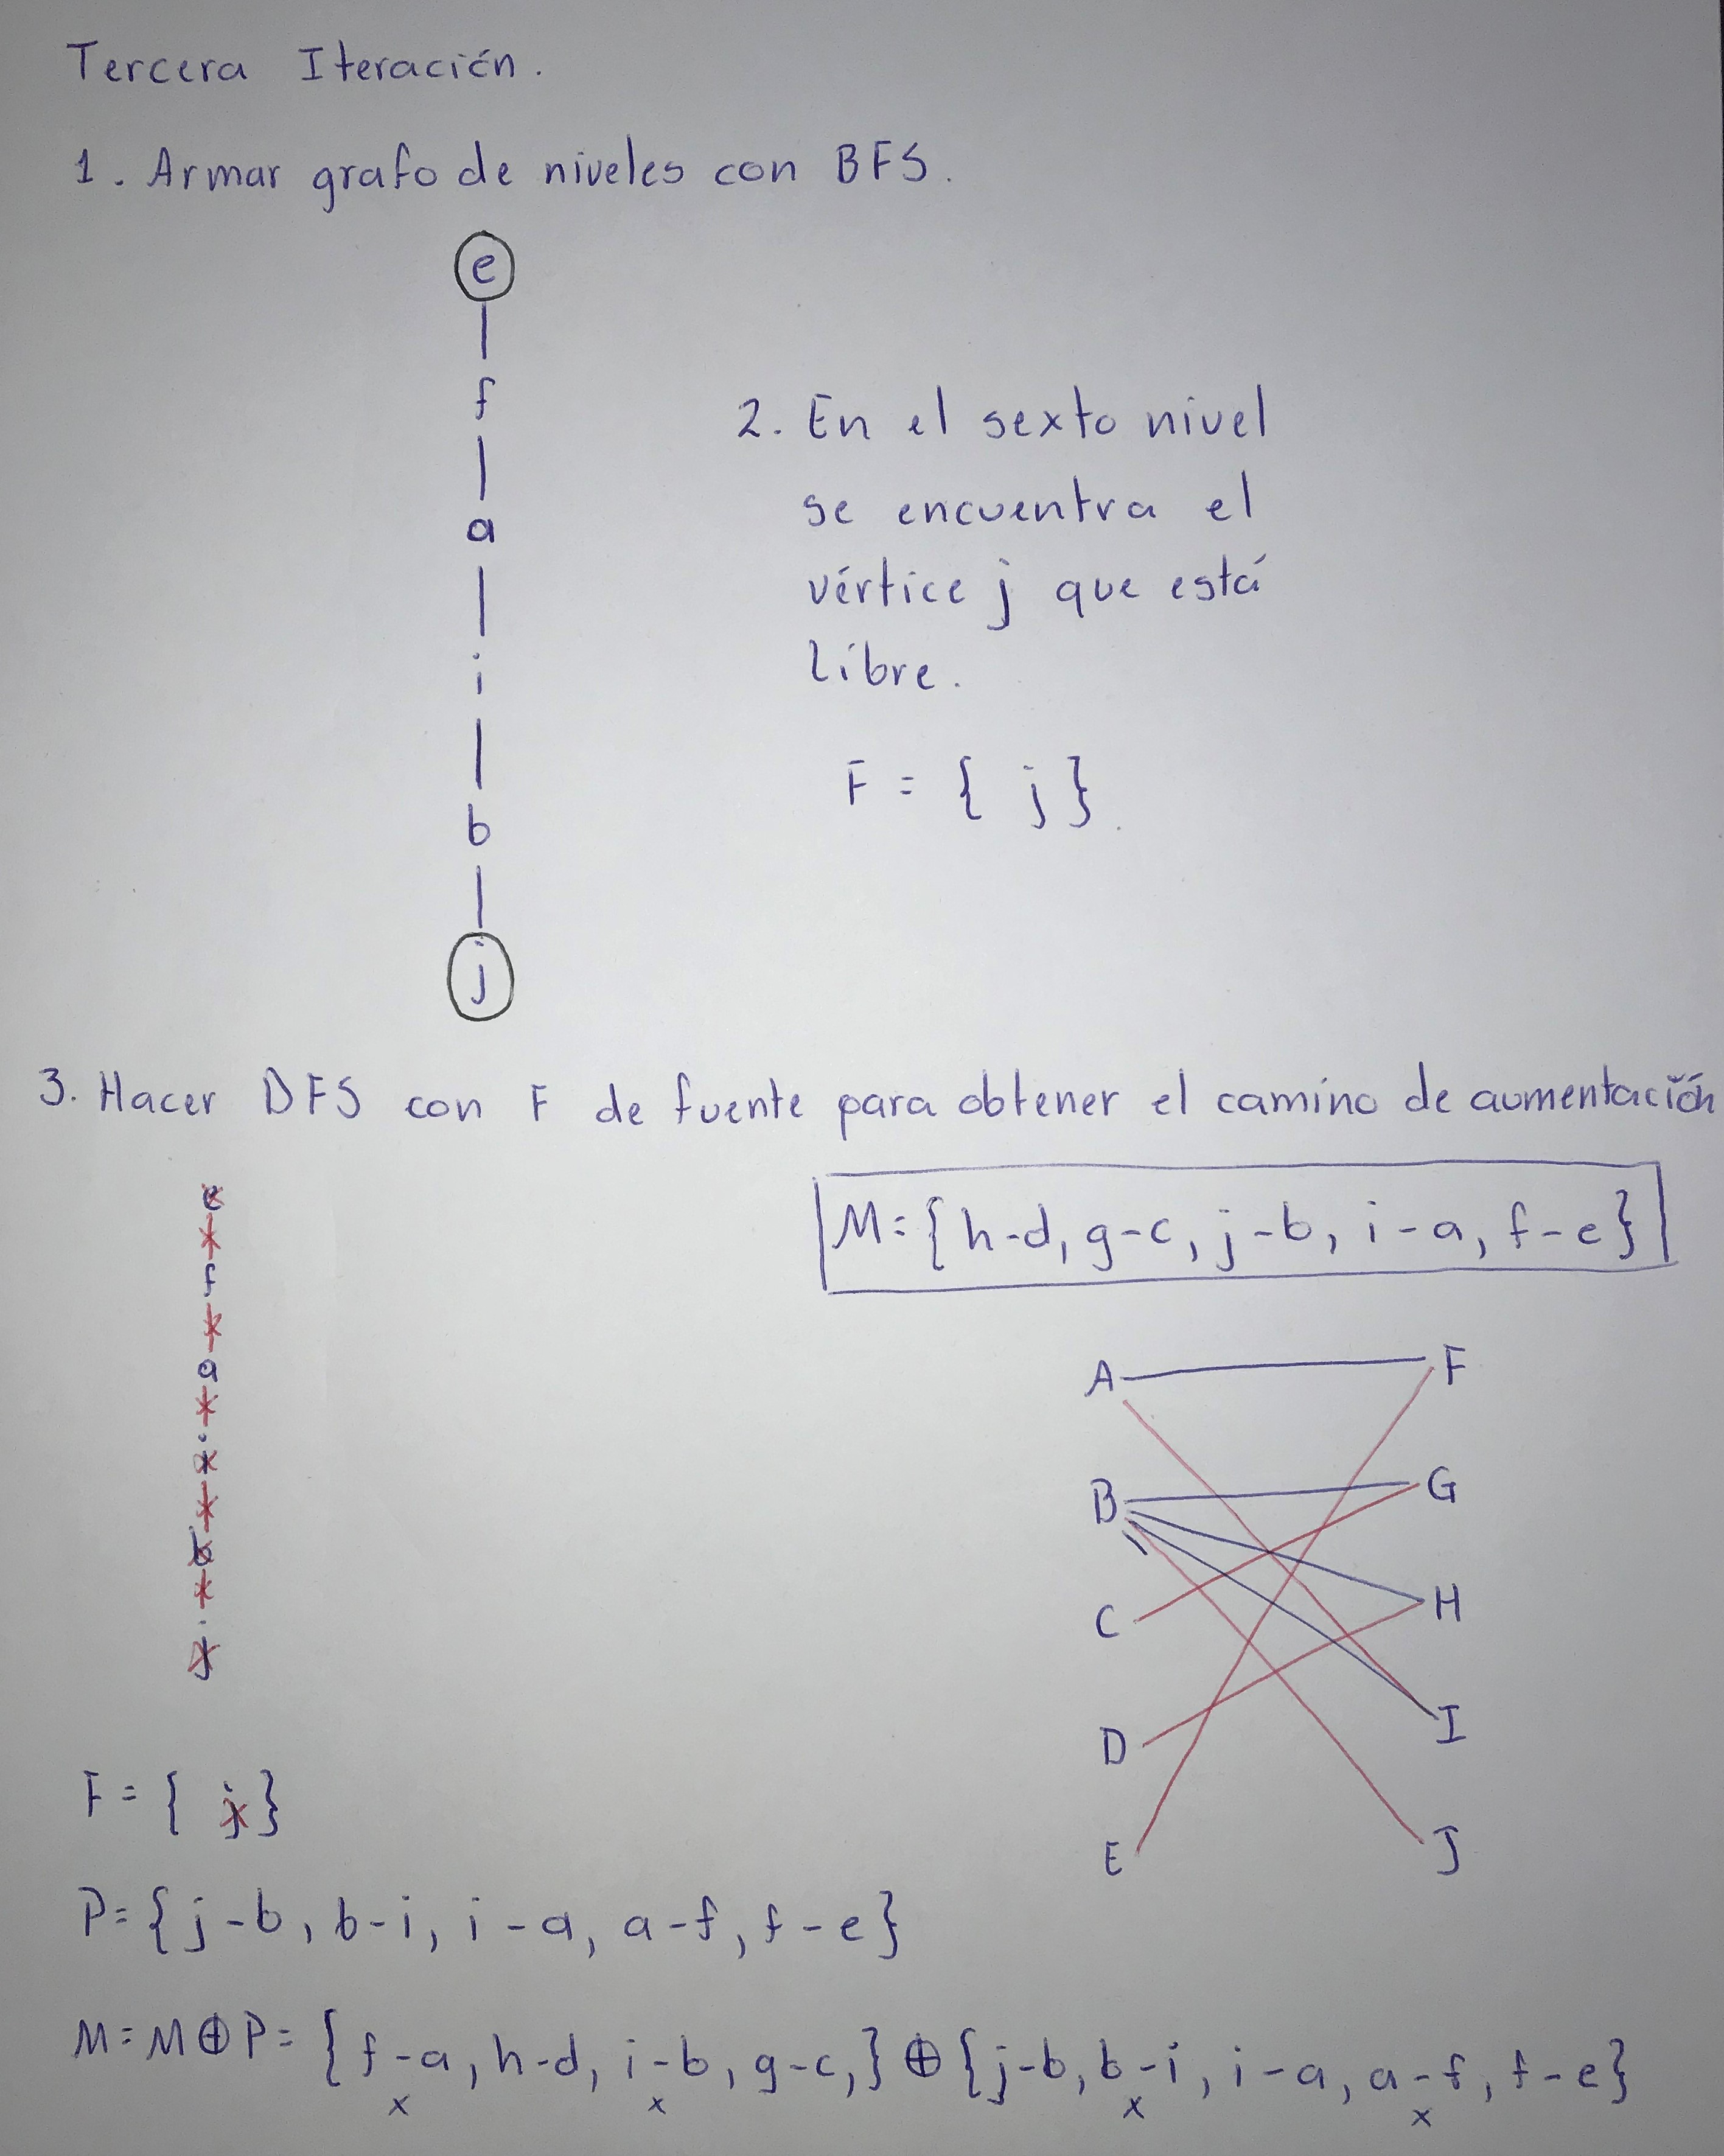 Tercera Iteración.
1. Armar grafo de niveles con BFS.
e
f
a
i
b
j
2. En el sexto nivel
se encuentra el
vértice j que está
libre.
F = { j }.
3. Hacer DFS con F de fuente para obtener el camino de aumentación
e
f
a
i
b
j
M = { h-d, g-c, j-b, i-a, f-e }
A F
B G
C H
D I
E J
F = { j }
P = { j-b, b-i, i-a, a-f, f-e }
M = M ⊕ P = { f-a, h-d, i-b, g-c, } ⊕ { j-b, b-i, i-a, a-f, f-e }
x x x x